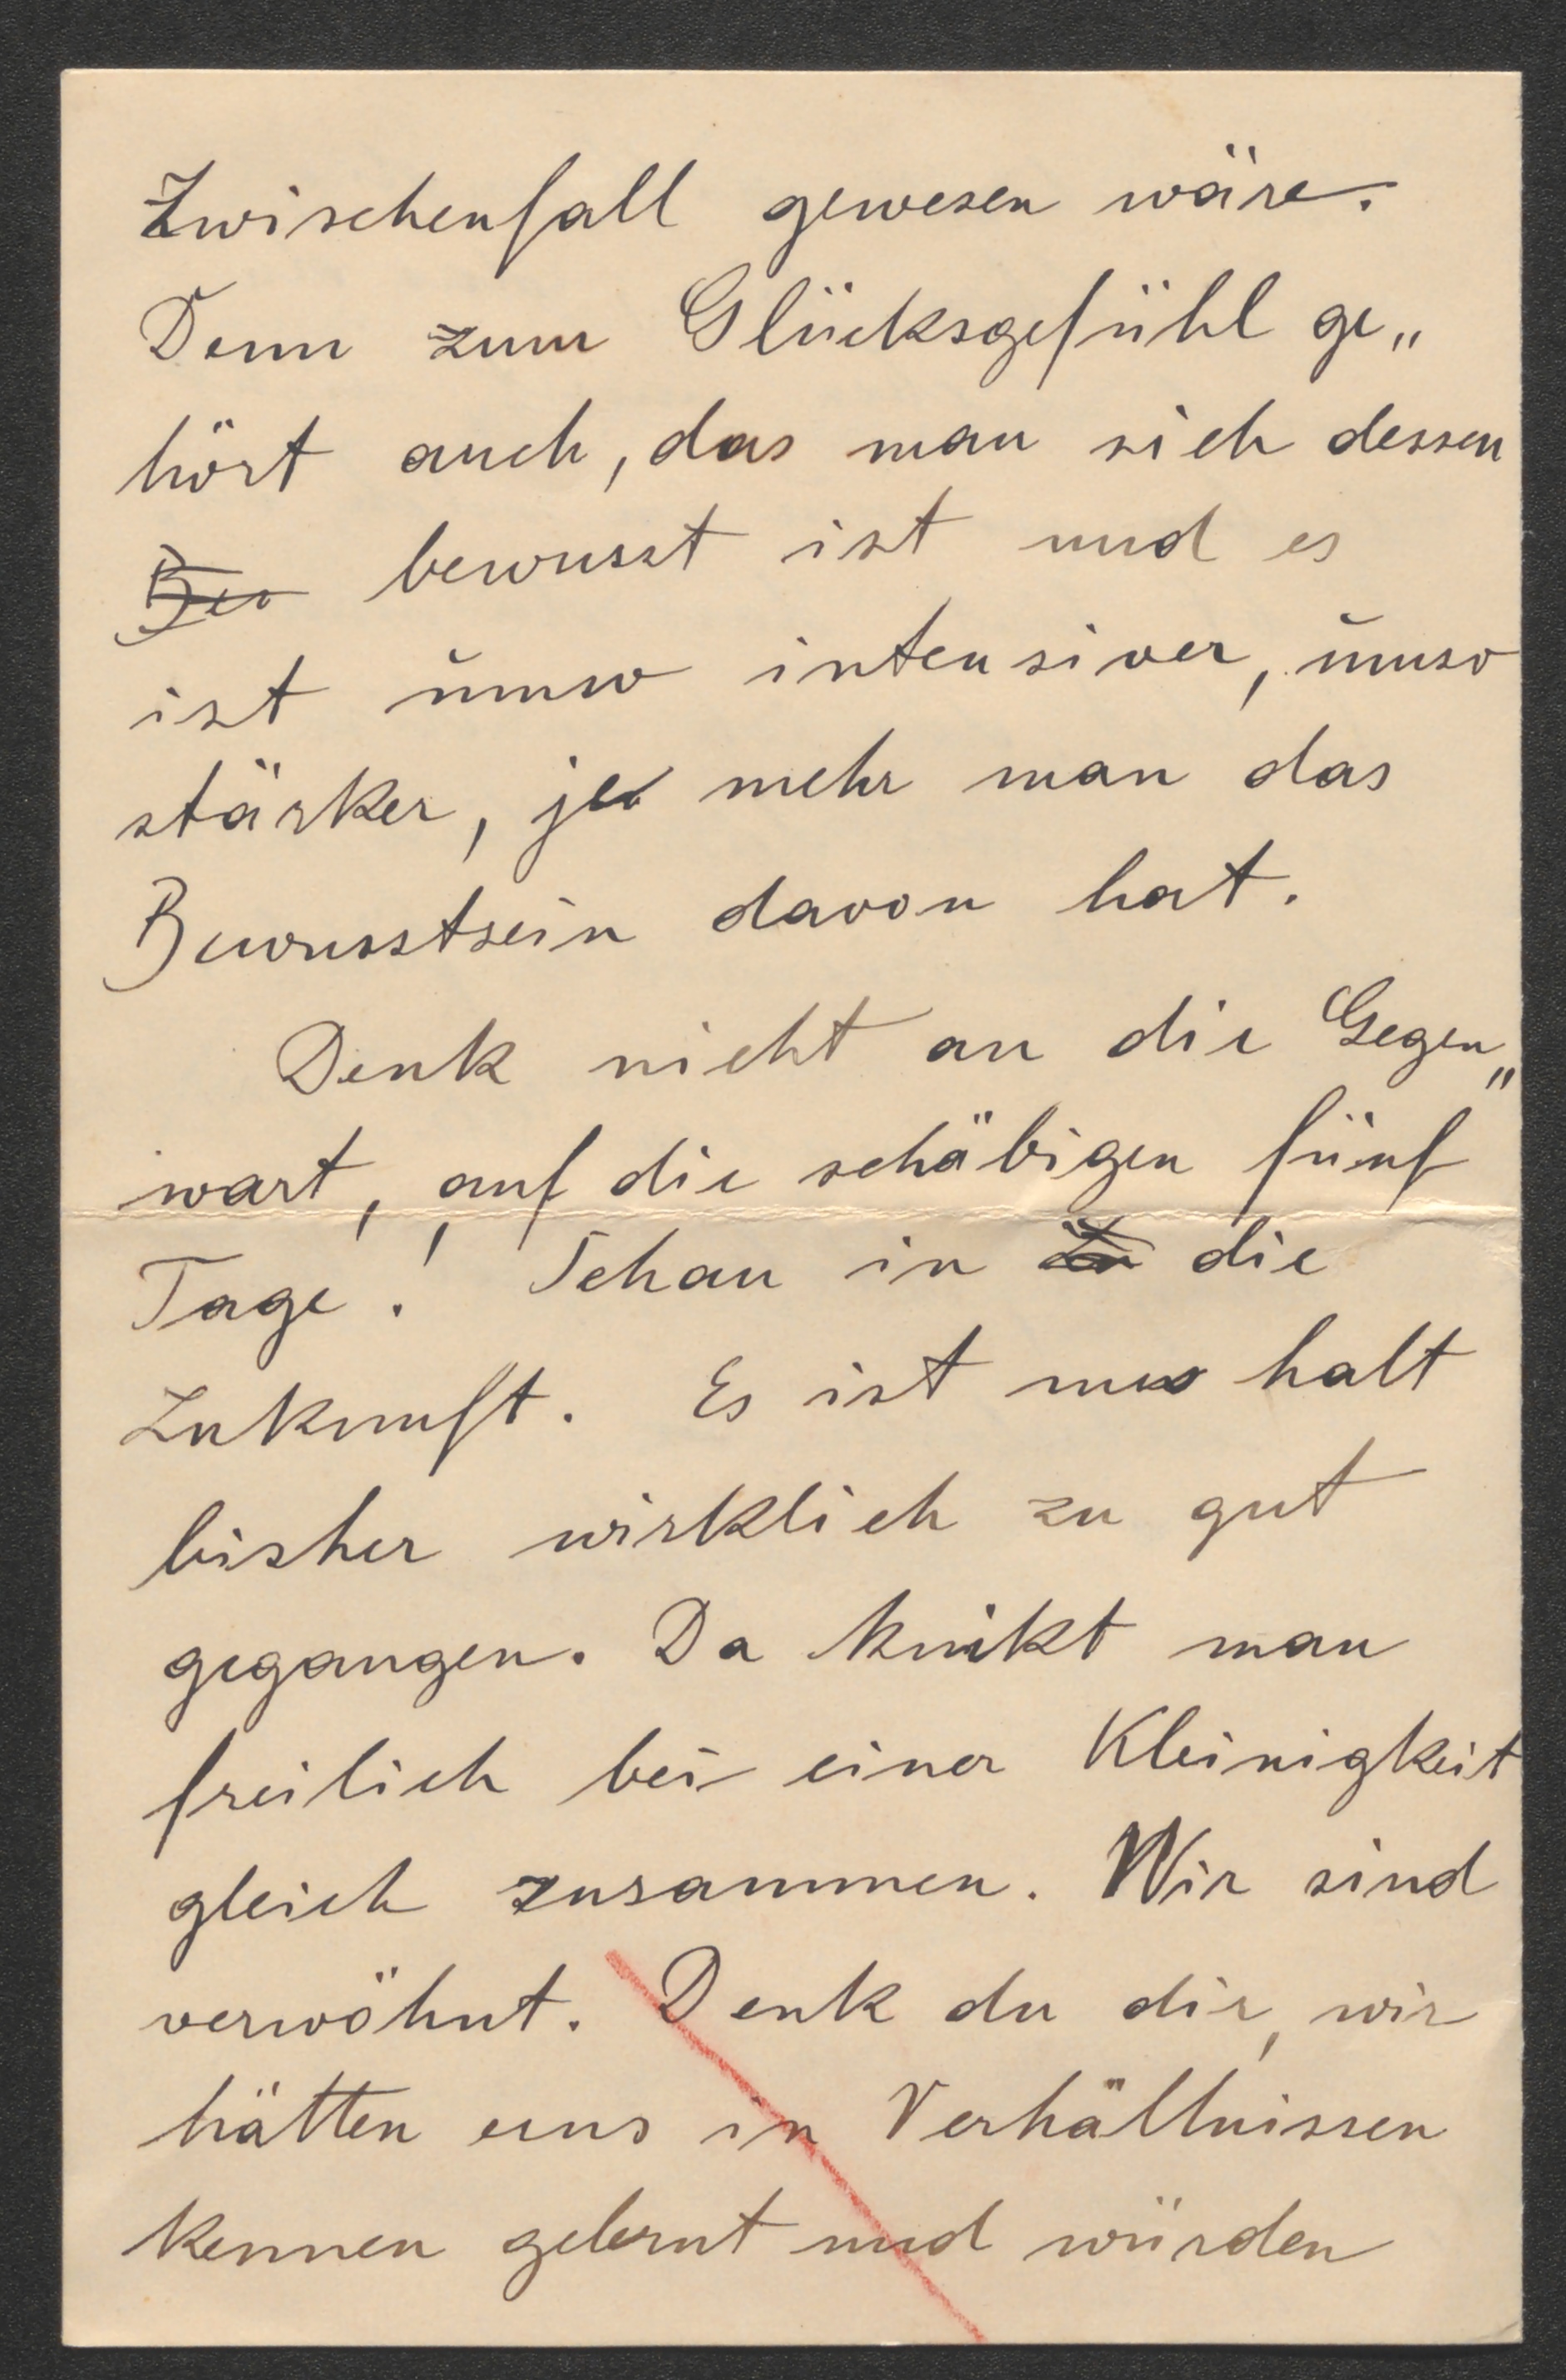 Zwischenfall gewesen wäre.
Denn zum Glücksgefühl ge„
hört auch, das man sich dessen
Bew bewusst ist und es
ist umso intensiver, umso
stärker, je mehr man das
Bewusstsein davon hat.
Denk nicht an die Gegen„
wart, auf die schäbigen fünf
Tage! Schau in die
Zukunft. Es ist halt
bisher wirklich zu gut
gegangen. Da knikt man
freilich bei einer Kleinigkeit
gleich zusammen. Wir sind
verwöhnt. Denk du dir, wir
hätten uns in Verhältnissen
kennen gelernt und würden